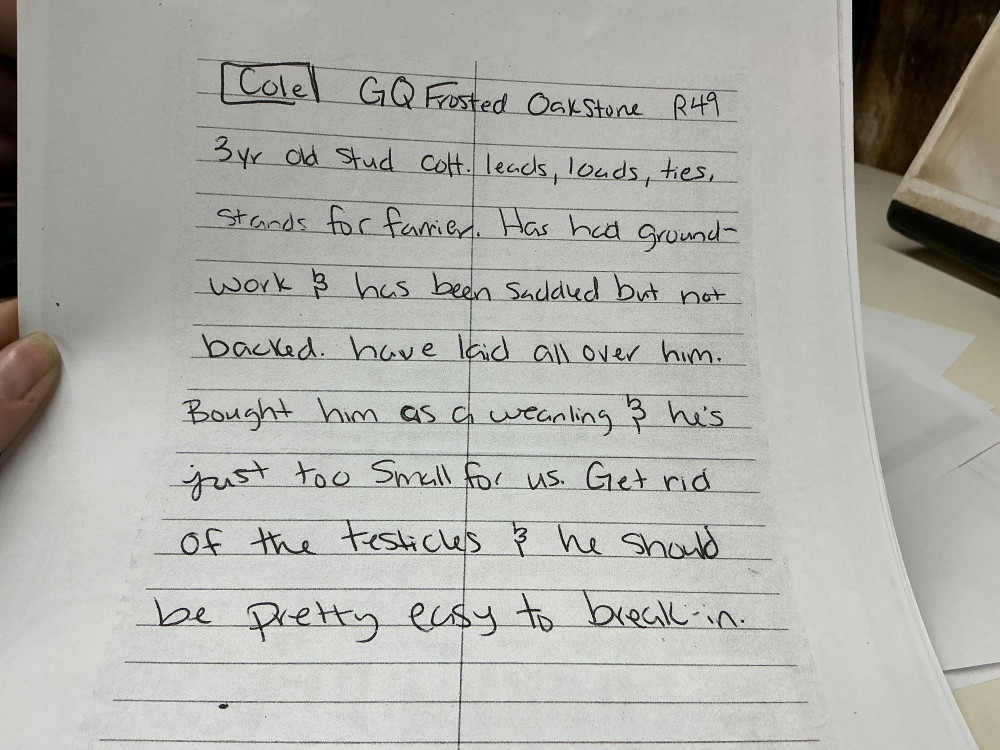 Cole GQ Frosted Oakstone R49
3yr old stud colt. leads, loads, ties,
stands for farrier. Has had ground-
work & has been saddled but not
backed. have laid all over him.
Bought him as a weanling & he's
just too small for us. Get rid
of the testicles & he should
be pretty easy to break-in.